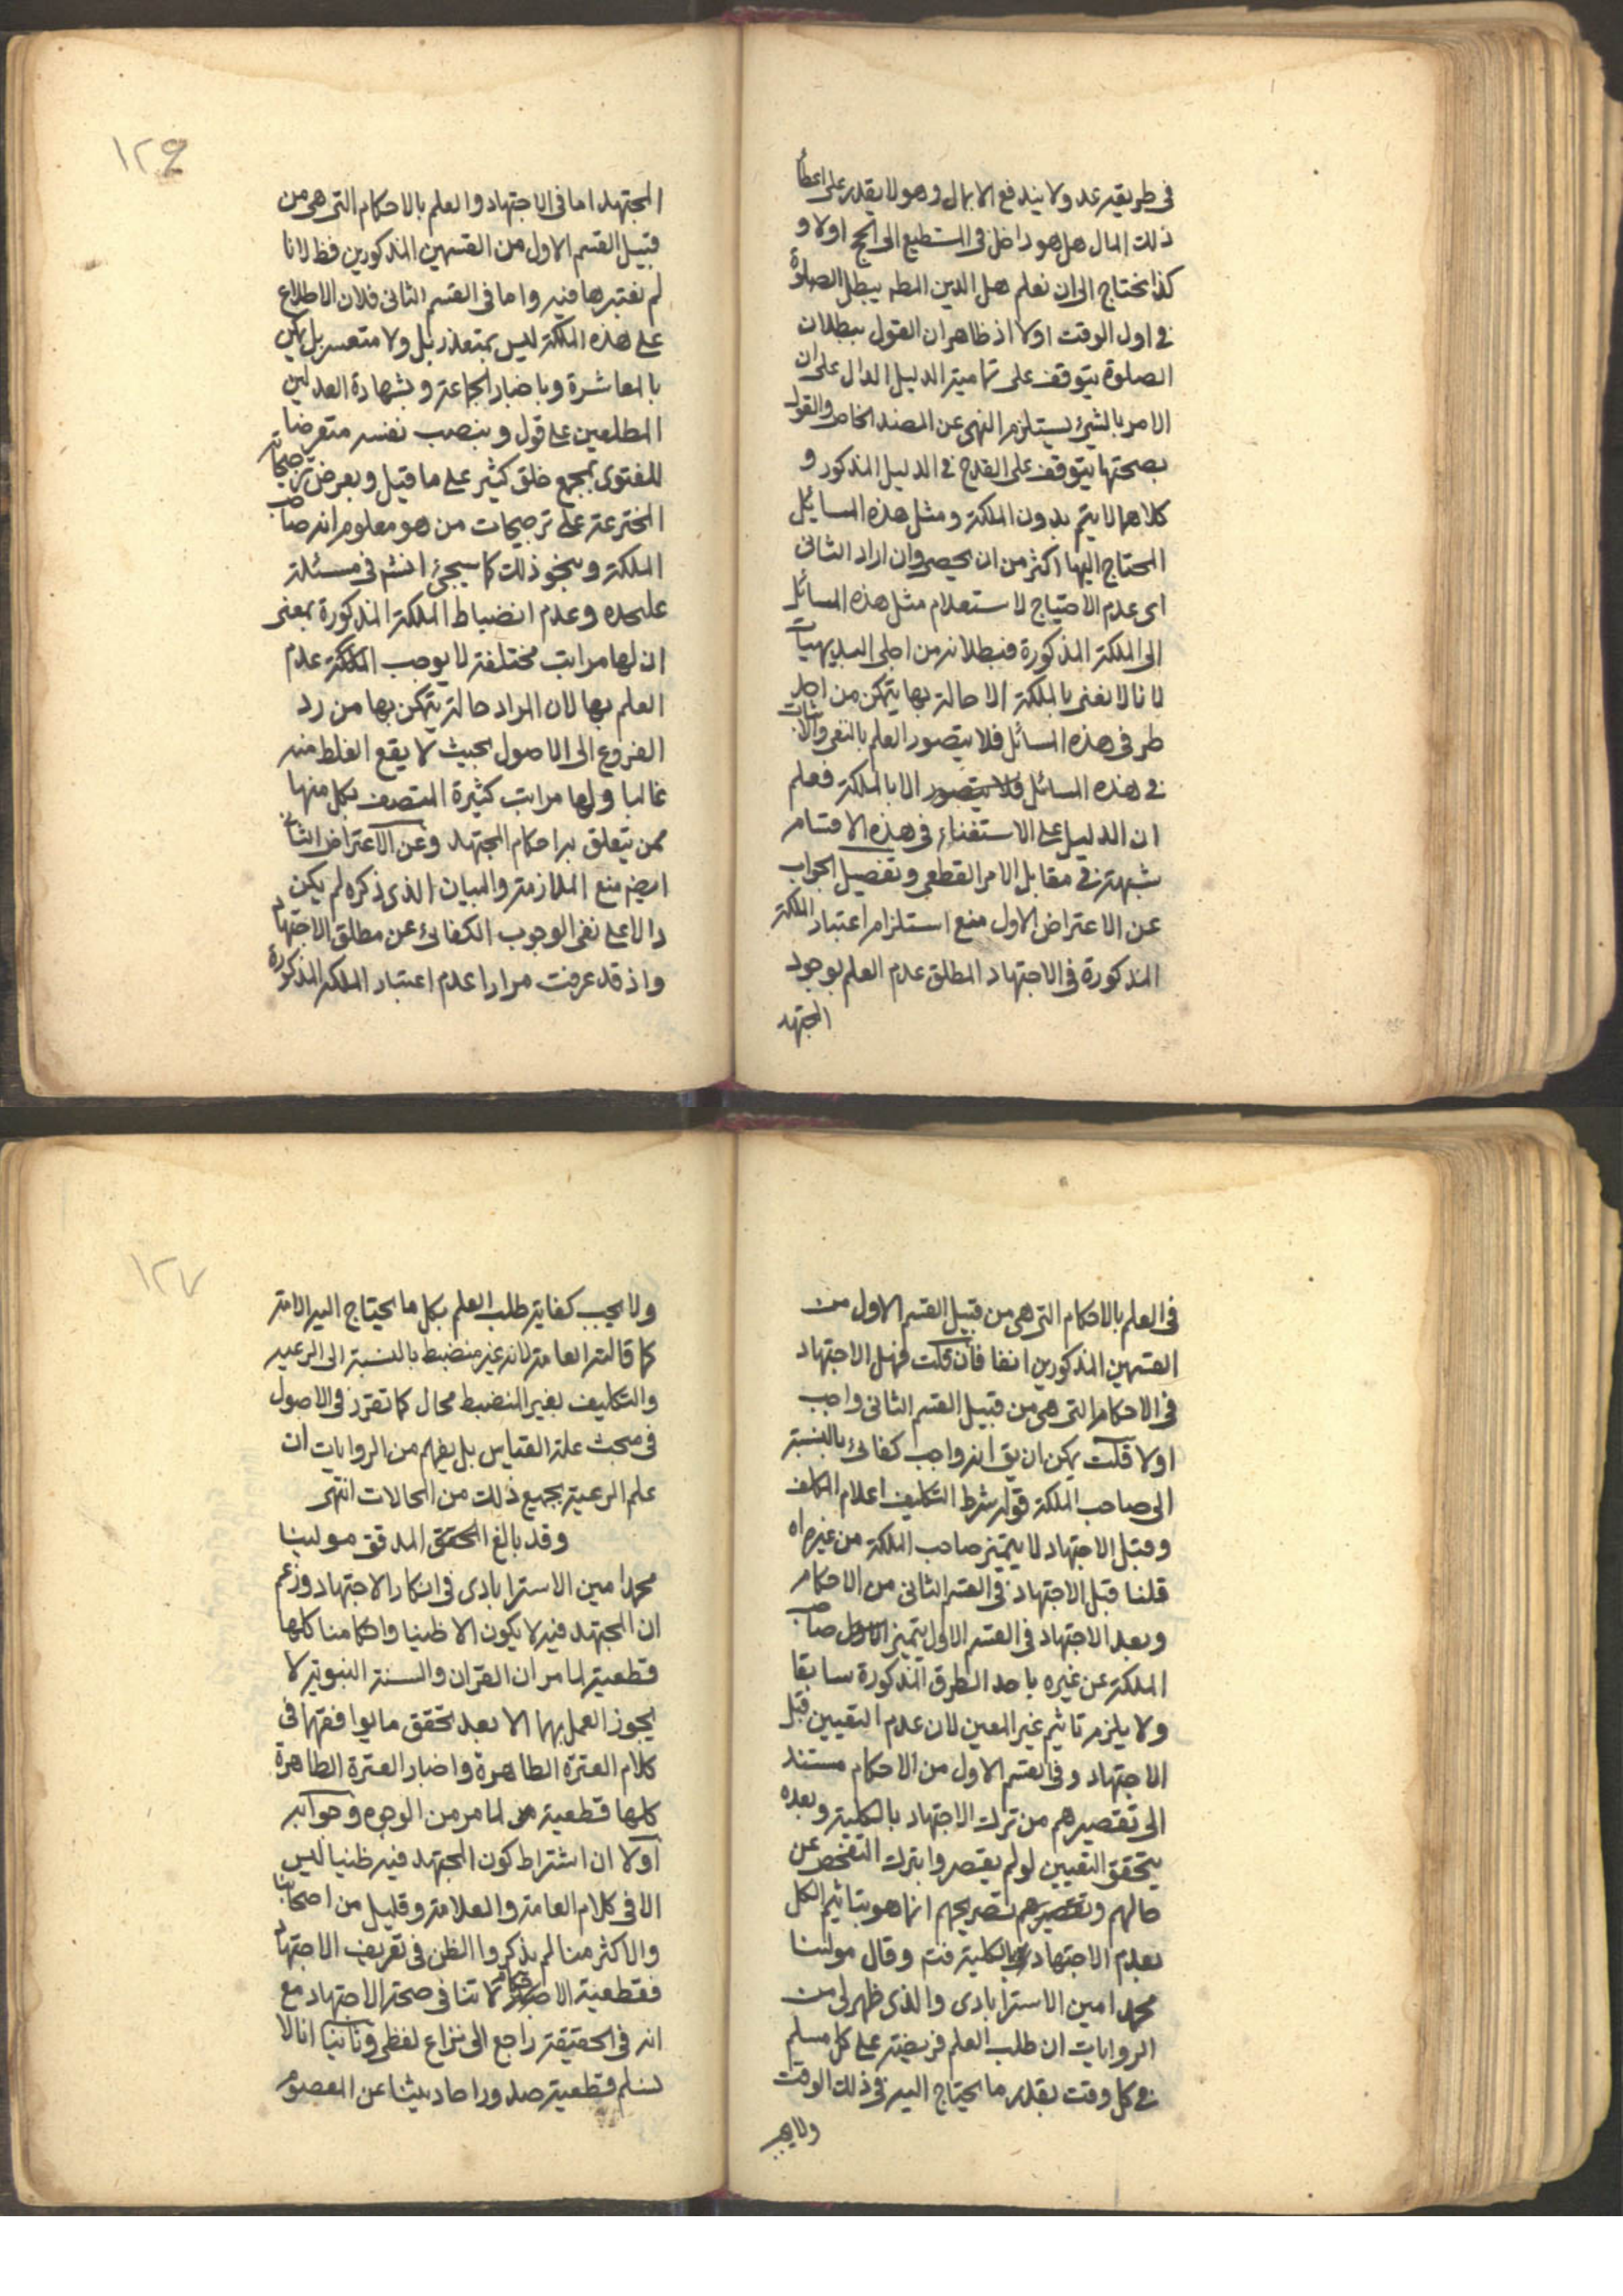 في طريقه عدو لا يندفع الا بمال وهو لا يقدر على اعطاء
ذلك المال هل هو داخل في المستطيع الى الحج اولا و
كذا نحتاج الى ان نعلم هل الدين المط يبطل الصلوة
في اول الوقت اولا اذ ظاهر ان القول ببطلان
الصلوة يتوقف على تمامية الدليل الدال على ان
الامر بالشيء يستلزم النهى عن الضد الخاص والقول
بصحتها يتوقف على القدح في الدليل المذكور و
كلاهما لا يتم بدون الملكة ومثل هذه المسايل
المحتاج اليها اكثر من ان يحصى وان اراد الثانى
اى عدم الاحتياج لاستعلام مثل هذه المسائل
الى الملكة المذكورة فبطلانه من اجلى البديهيات
لانا لا نعنى بالملكة الا حالة بها يتمكن من احد
طرفى هذه المسائل فلا يتصور العلم بالنفى والاثبات
في هذه المسائل فلا يتصور الا بالملكة فعلم
ان الدليل على الاستغناء في هذه الاقسام
شبهة في مقابل الامر القطعى وتفصيل الجواب
عن الاعتراض الاول منع استلزام اعتبار الملكة
المذكورة في الاجتهاد المطلق عدم العلم بوجود
المجتهد
١٢٦
المجتهد اما في الاجتهاد والعلم بالاحكام التى هى من
قبيل القسم الاول من القسمين المذكورين فظ لانا
لم نعتبرها فيه واما في القسم الثانى فلان الاطلاع
على هذه الملكة ليس بمتعذر بل ولا متعسر بل يمكن
بالمعاشرة وباخبار الجماعة وبشهادة العدلين
المطلعين على قول وبنصب نفسه متعرضا
للفتوى بمجمع خلق كثير على ما قيل وبعرض ترجيحاته
المخترعة على ترجيحات من هو معلوم انه صاحب
الملكة وبنحو ذلك كما سيجئ انشم في مسئلة
عليحده وعدم انضباط الملكة المذكورة بمعنى
ان لها مراتب مختلفة لا يوجب الملكة عدم
العلم بها لان المراد حالة يتمكن بها من رد
الفروع الى الاصول بحيث لا يقع الغلط منه
غالبا ولها مراتب كثيرة المتصف بكل منها
ممن يتعلق به احكام المجتهد وعن الاعتراض الثانى
ايضم منع الملازمة والبيان الذى ذكره لم يكن
دالا على نفى الوجوب الكفائى عن مطلق الاجتهاد
واذ قد عرفت مرارا عدم اعتبار الملكة المذكورة
في العلم بالاحكام التى هى من قبيل القسم الاول من
القسمين المذكورين انفا فان قلت فهل الاجتهاد
في الاحكام التى هى من قبيل القسم الثانى واجب
اولا قلت يمكن ان يق انه واجب كفائى بالنسبة
الى صاحب الملكة قوله شرط التكليف اعلام المكلف
وقبل الاجتهاد لا يتميز صاحب الملكة من غيره اه
قلنا قبل الاجتهاد في القسم الثانى من الاحكام
وبعد الاجتهاد في القسم الاول يتميز صاحب
الملكة عن غيره باحد الطرق المذكورة سابقا
ولا يلزم تاثيم غير المعين لان عدم التعيين قبل
الاجتهاد وفي القسم الاول من الاحكام مستند
الى تقصيرهم من ترك الاجتهاد بالكلية وبعده
يتحقق التعيين لو لم يقصروا بترك التفحص عن
حالهم وتقصيرهم تصريحهم انما هو بتاثيم الكل
بعدم الاجتهاد بالكلية فت وقال مولينا
محمد امين الاسترابادى والذى ظهر لى من
الروايات ان طلب العلم فريضة على كل مسلم
في كل وقت بقدر ما يحتاج اليه في ذلك الوقت
ولا يجب
١٢٧
ولا يجب كفاية طلب العلم بكل ما يحتاج اليه الامة
كما قالته العامة لانه غير منضبط بالنسبة الى الرعية
والتكليف بغير المنضبط محال كما تقرر في الاصول
في مبحث علة القياس بل يفهم من الروايات ان
علم الرعية بجميع ذلك من المحالات انتهى
وقد بالغ المحقق المدقق مولينا
محمد امين الاسترابادى في انكار الاجتهاد وزعم
ان المجتهد فيه لا يكون الا ظنيا واحكامنا كلها
قطعية لما مر ان القران والسنة النبوية لا
يجوز العمل بهما الا بعد تحقق ما يوافقها في
كلام العترة الطاهرة واخبار العترة الطاهرة
كلها قطعية لما مر من الوجوه وجوابه
اولا ان اشتراط كون المجتهد فيه ظنيا ليس
الا في كلام العامة والعلامة وقليل من اصحابنا
والاكثر منا لم يذكروا الظن في تعريف الاجتهاد
فقطعية الاحكام لا تنافى صحة الاجتهاد مع
انه في الحقيقة راجع الى نزاع لفظى وثانيا انا لا
نسلم قطعية صدور احاديثنا عن المعصوم